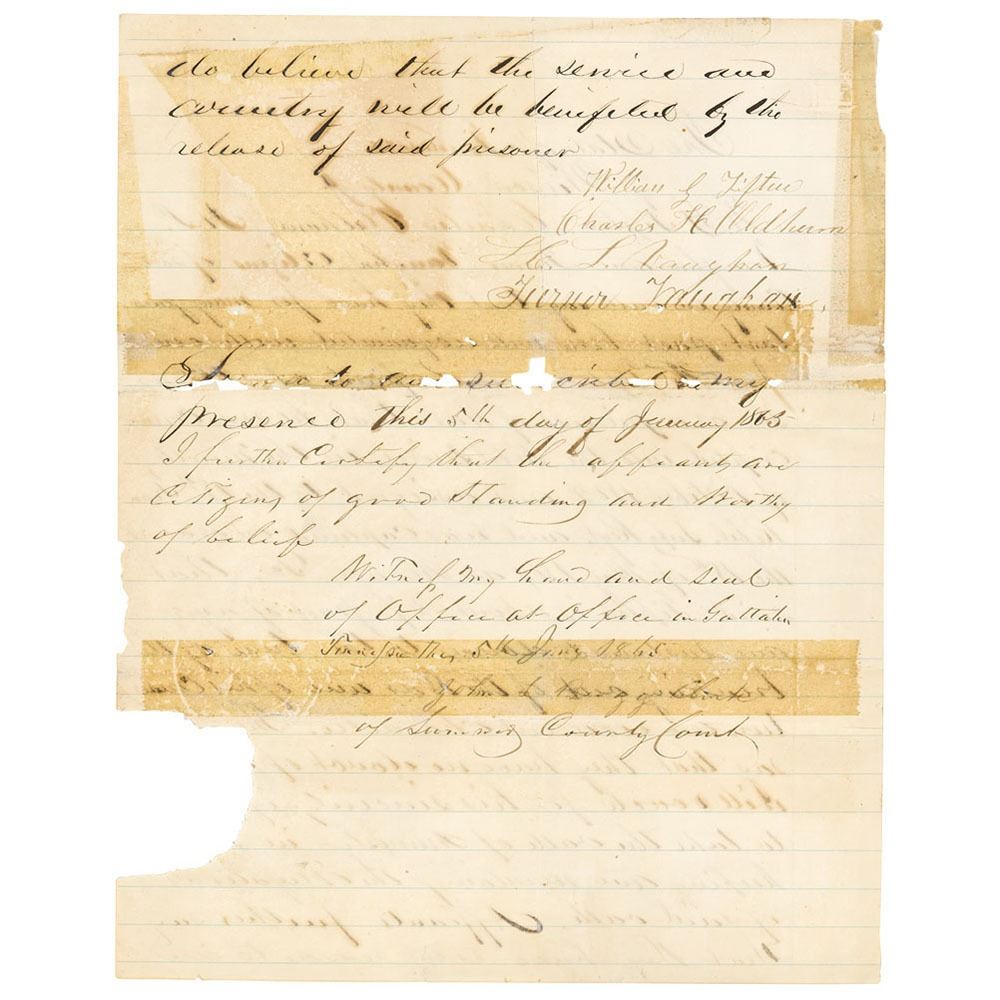 do believe that the service and
country will be benifited by the
release of said prisoner
William
Charles H Oldham
L. Vaughan
Turner Vaughan
to and
presence this 5th day of January 1865
I further Certify that the affiants are
Citizens of good Standing and Worthy
of belief
Witness my hand and seal
of Office at Office in Gallatin
Tennessee this 5th Jany 1865
John L
of Sumner County Court